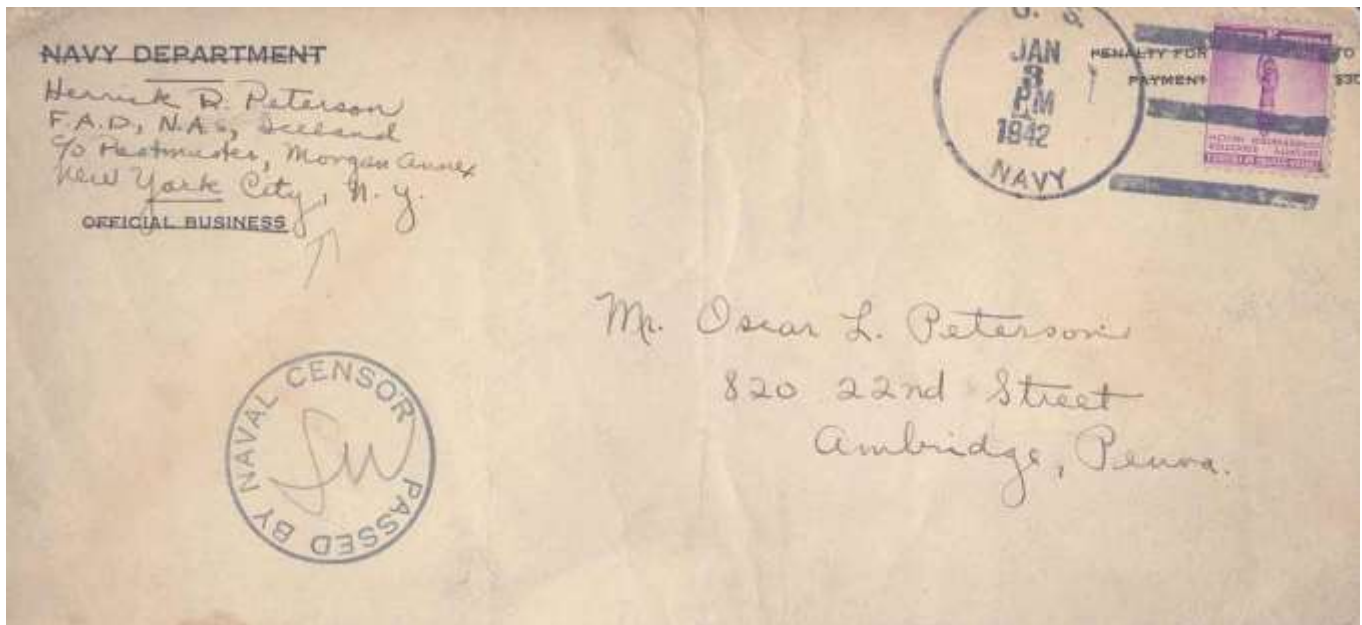 NAVY DEPARTMENT
Herrick D. Peterson
F.A.D., N.A.S, Iceland
c/o Postmaster, Morgan Annex
New York City, N.Y.
OFFICIAL BUSINESS
U. S.
JAN
3
PM
1942
NAVY
PENALTY FOR TO
PAYMENT $30
Mr. Oscar L. Peterson
820 22nd Street
Ambridge, Penna.
PASSED BY NAVAL CENSOR